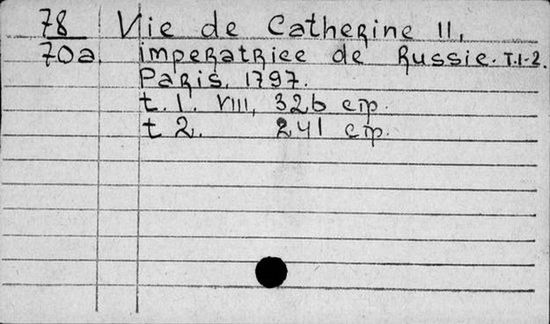 78 Vie de Catherine II,
70a. imperatriee de Russie. T.1-2.
Paris, 1797.
t. 1. VIII, 326 стр.
t 2. 241 стр.